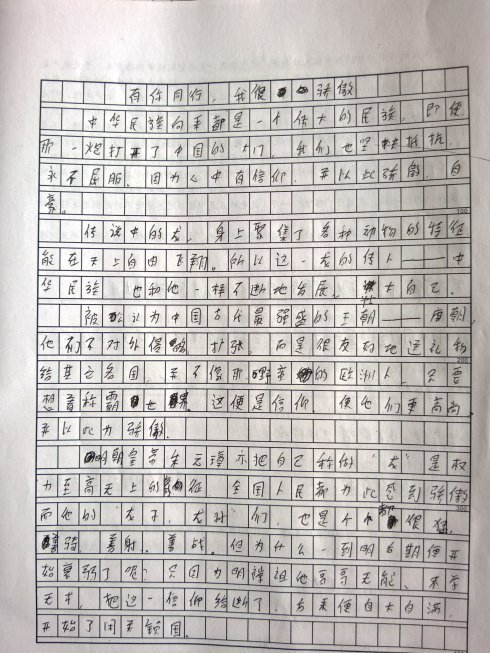 有你同行,我很骄傲
中华民族向来都是一个伟大的民族,即使
那一炮打开了中国的大门,我们也坚持抵抗,
永不屈服。因为心中有信仰,并以此骄傲,自
豪。
传说中的龙,身上聚集了各种动物的特征
能在天上自由飞翔。所以这一龙的传人——中
华民族,也和他一样不断地发展,壮大自己。
被公认为中国古代最强盛的王朝——唐朝,
他们不对外侵略,扩张,而是很友好地送礼物
给其它各国,并不像那野蛮的欧洲人,只要
想着称霸世界。这便是信仰,使他们更高尚
并以此为骄傲。
明朝皇帝朱元璋亦把自己称做“龙”是权
力至高无上的象征,全国人民都为此感到骄傲
而他的“龙子,龙孙”们,也是个个都很猛,
善骑,善射,善战。但为什么一到明后期便开
始衰弱了呢?只因为明诸祖他哥哥无能,不学
无术,把这一信仰给断了,方来便自大自满,
开始了闭关锁国。